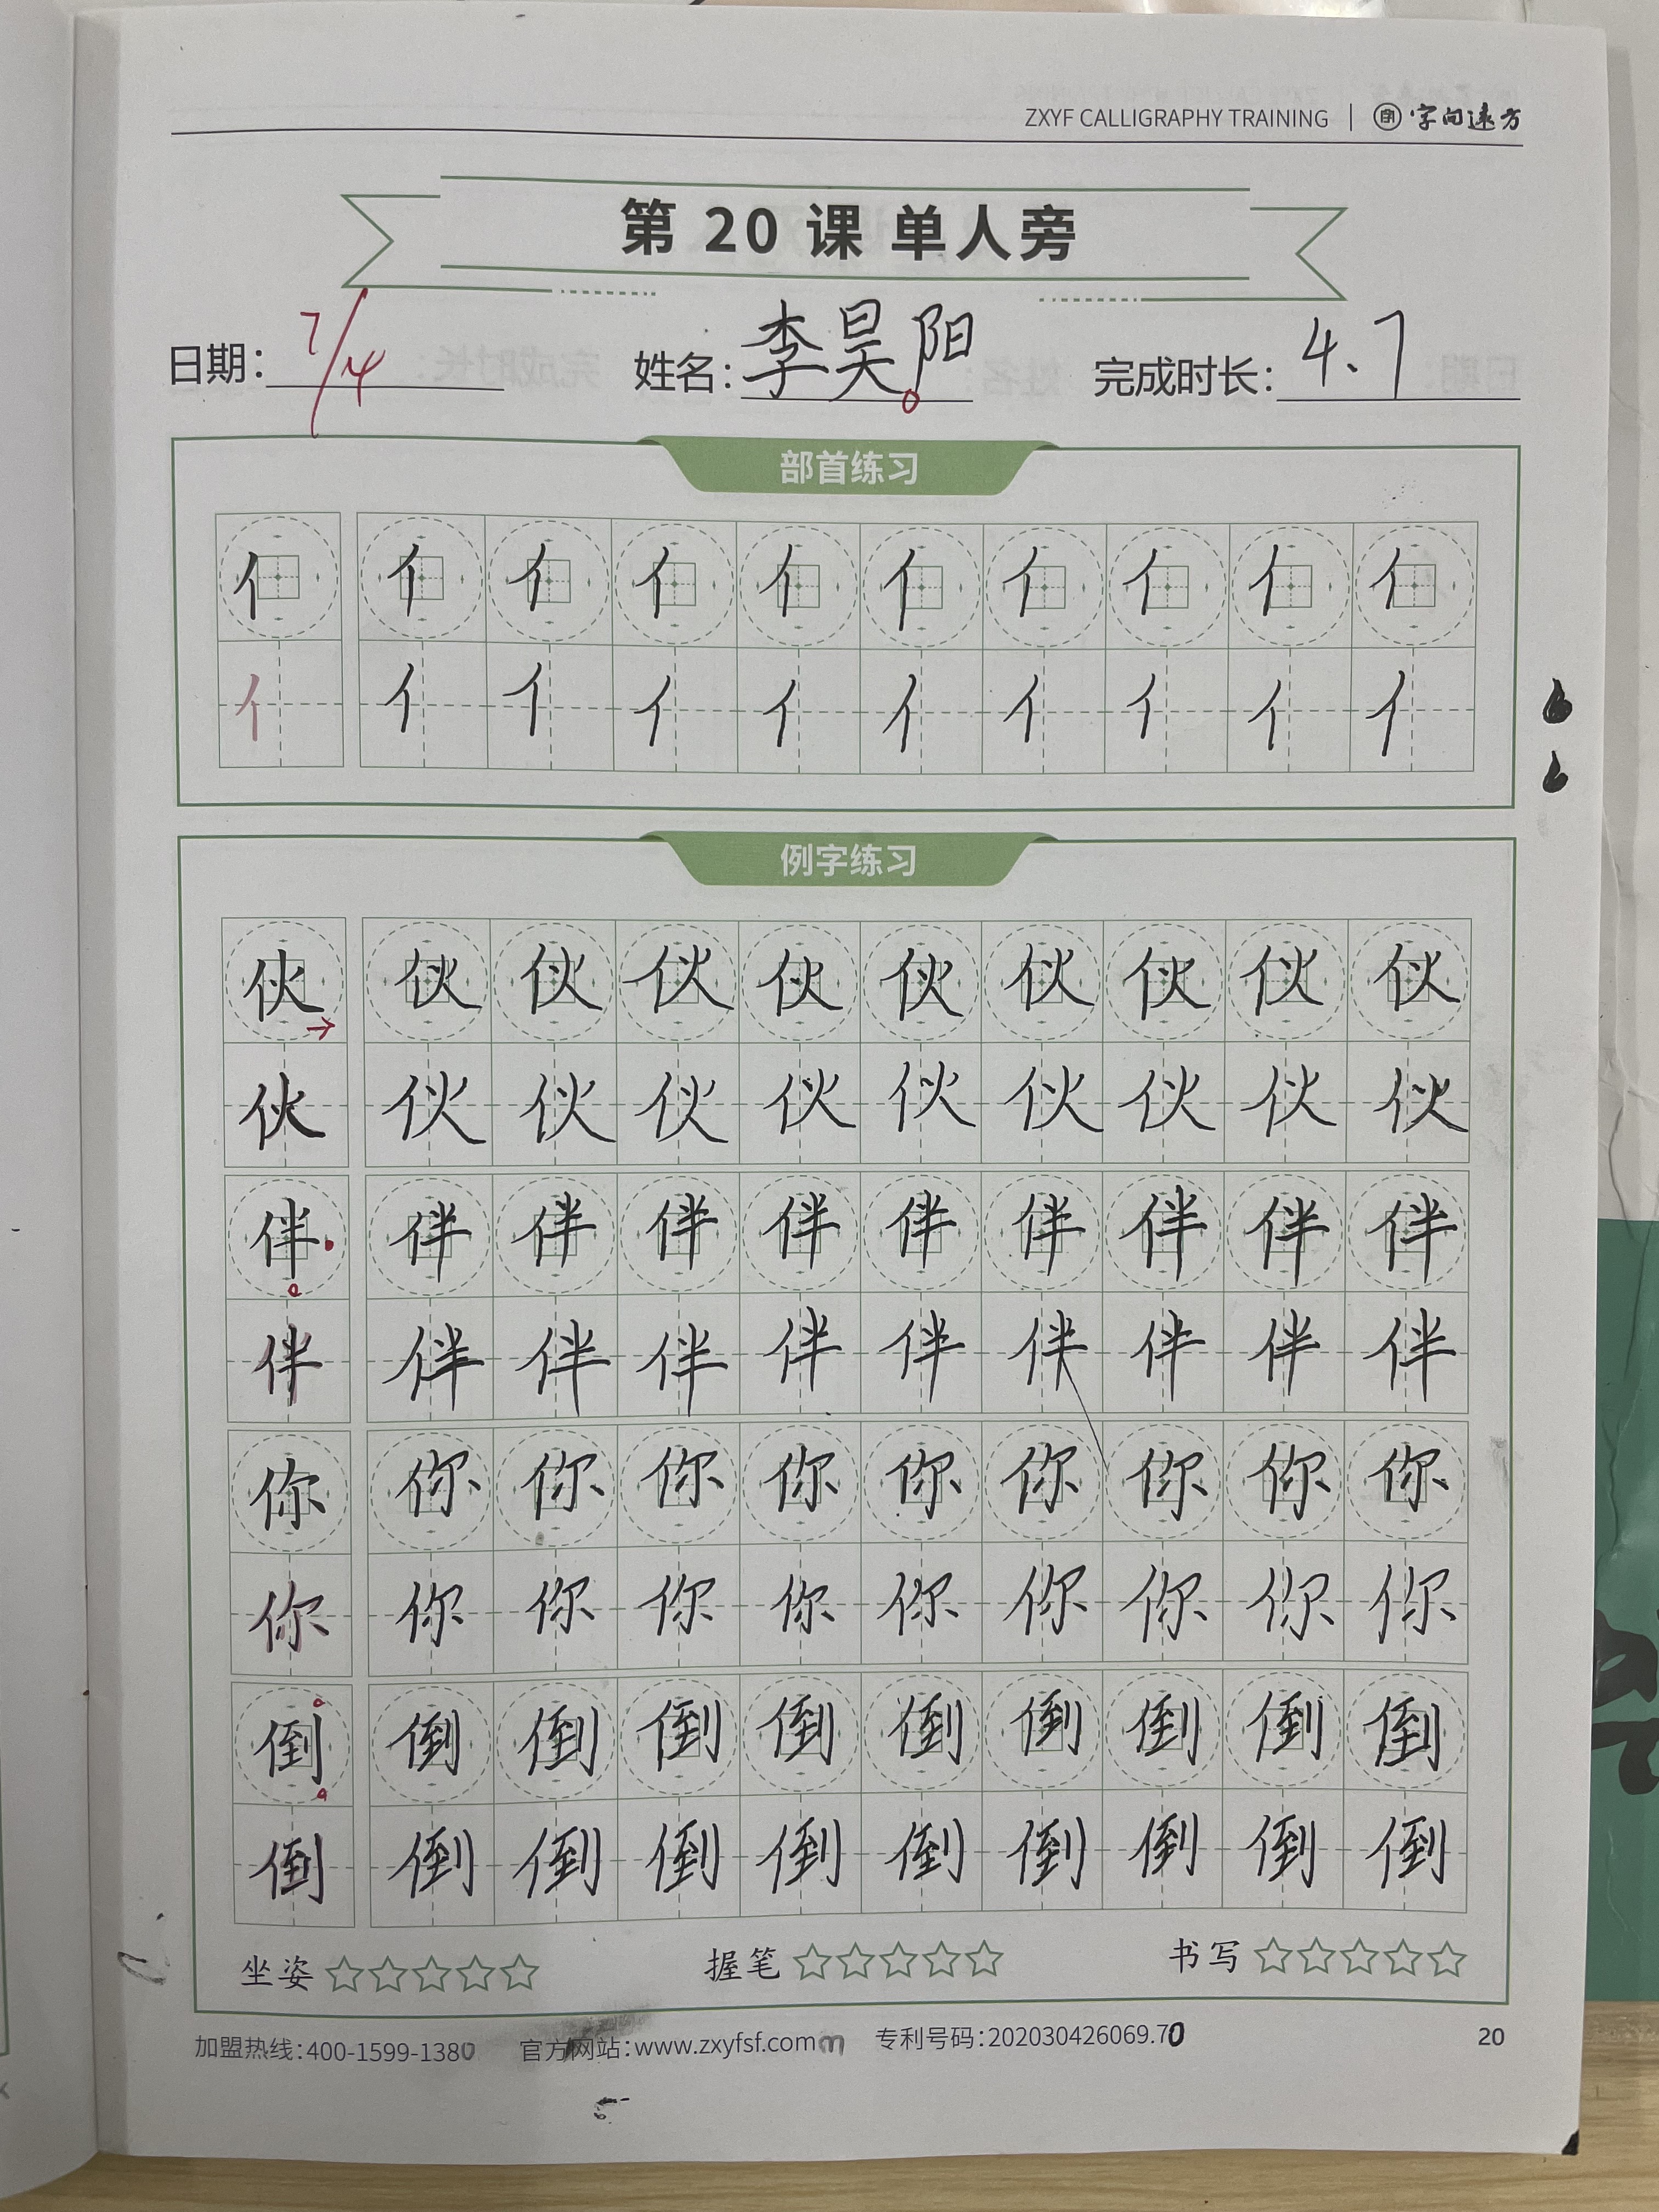 ZXYF CALLIGRAPHY TRAINING | 字向远方
第 20 课 单人旁
日期: 7/4 姓名: 李昊阳 完成时长: 4.7
部首练习
亻 亻 亻 亻 亻 亻 亻 亻 亻 亻
亻 亻 亻 亻 亻 亻 亻 亻 亻 亻
例字练习
伙 伙 伙 伙 伙 伙 伙 伙 伙 伙
伙 伙 伙 伙 伙 伙 伙 伙 伙 伙
伴 伴 伴 伴 伴 伴 伴 伴 伴 伴
伴 伴 伴 伴 伴 伴 伴 伴 伴 伴
你 你 你 你 你 你 你 你 你 你
你 你 你 你 你 你 你 你 你 你
倒 倒 倒 倒 倒 倒 倒 倒 倒 倒
倒 倒 倒 倒 倒 倒 倒 倒 倒 倒
坐姿 ☆☆☆☆☆ 握笔 ☆☆☆☆☆ 书写 ☆☆☆☆☆
加盟热线:400-1599-1380 官方网站:www.zxyfsf.comm 专利号码:202030426069.70 20